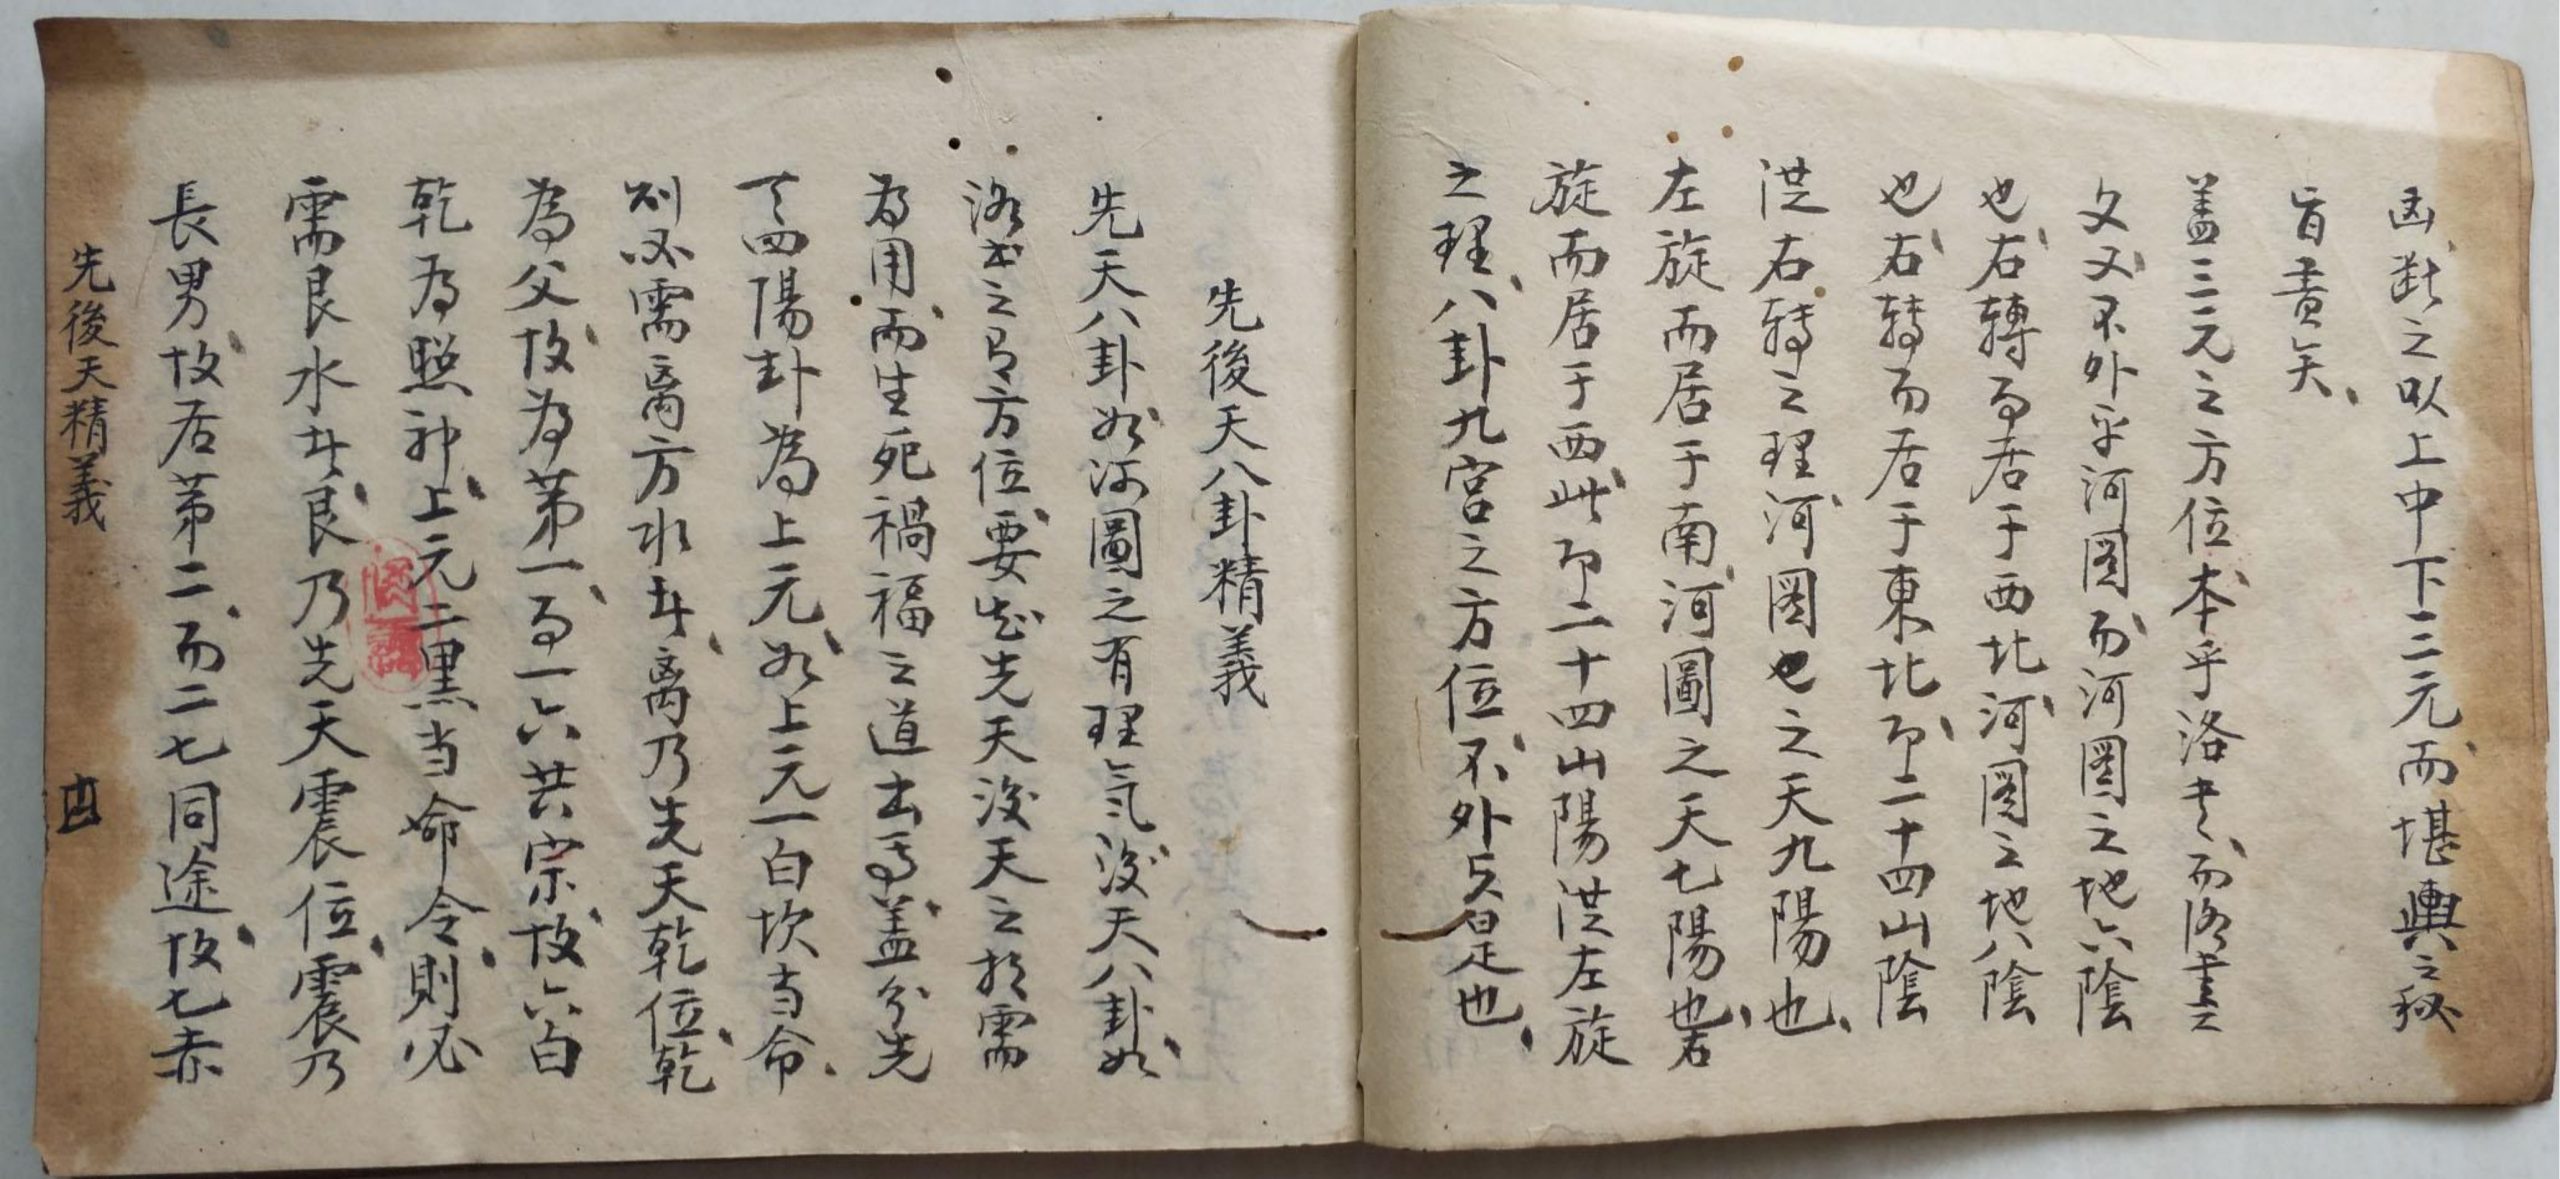 凶, 斷之以上中下三元, 而堪輿之秘
旨盡矣、
蓋三元之方位、本乎洛書、而洛書之
文、又不外乎河图、而河图之地六陰
也、右轉而居于西北、河图之地八陰
也、右轉而居于東北、即二十四山陰
洪右轉之理、河图也之天九陽也、
左旋而居于南、河圖之天七陽也、右
旋而居于西、此即二十四山陽洪左旋
之理、八卦九宮之方位、不外是也、
先後天八卦精義
先天八卦、如河圖之有理氣、後天八卦、如
洛书之有方位、要知先天後天之相需
為用、而生死禍福之道出焉、蓋分先
天四陽卦為上元、如上元一白坎当令、
則必需离方水才、离乃先天乾位、乾
為父、故為第一、而一六共宗、故六白
乾為照神、上元二黑当命令、則必
需艮水才、艮乃先天震位、震乃
長男、故居第二、而二七同途、故七赤
先後天精義